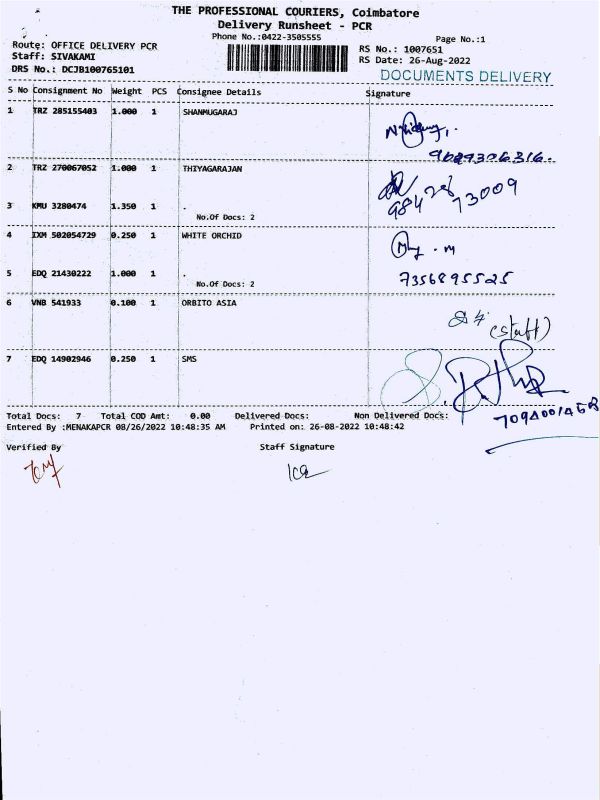 THE PROFESSIONAL COURIERS, Coimbatore
Delivery Runsheet - PCR
Phone No.:0422-3505555
Page No.:1
Route: OFFICE DELIVERY PCR
RS No.: 1007651
Staff: SIVAKAMI
RS Date: 26-Aug-2022
DRS No.: DCJB100765101
DOCUMENTS DELIVERY
S No Consignment No Weight PCS Consignee Details Signature
1 TRZ 285155403 1.000 1 SHANMUGARAJ
2 TRZ 270067052 1.000 1 THIYAGARAJAN
984 73009
3 KMU 3280474 1.350 1 .
No.Of Docs: 2
4 IXM 502054729 0.250 1 WHITE ORCHID
5 EDQ 21430222 1.000 1 .
7356895525
No.Of Docs: 2
6 VNB 541933 0.100 1 ORBITO ASIA
(staff)
7 EDQ 14902946 0.250 1 SMS
Total Docs: 7 Total COD Amt: 0.00 Delivered Docs: Non Delivered Docs:
Entered By :MENAKAPCR 08/26/2022 10:48:35 AM Printed on: 26-08-2022 10:48:42
Verified By Staff Signature